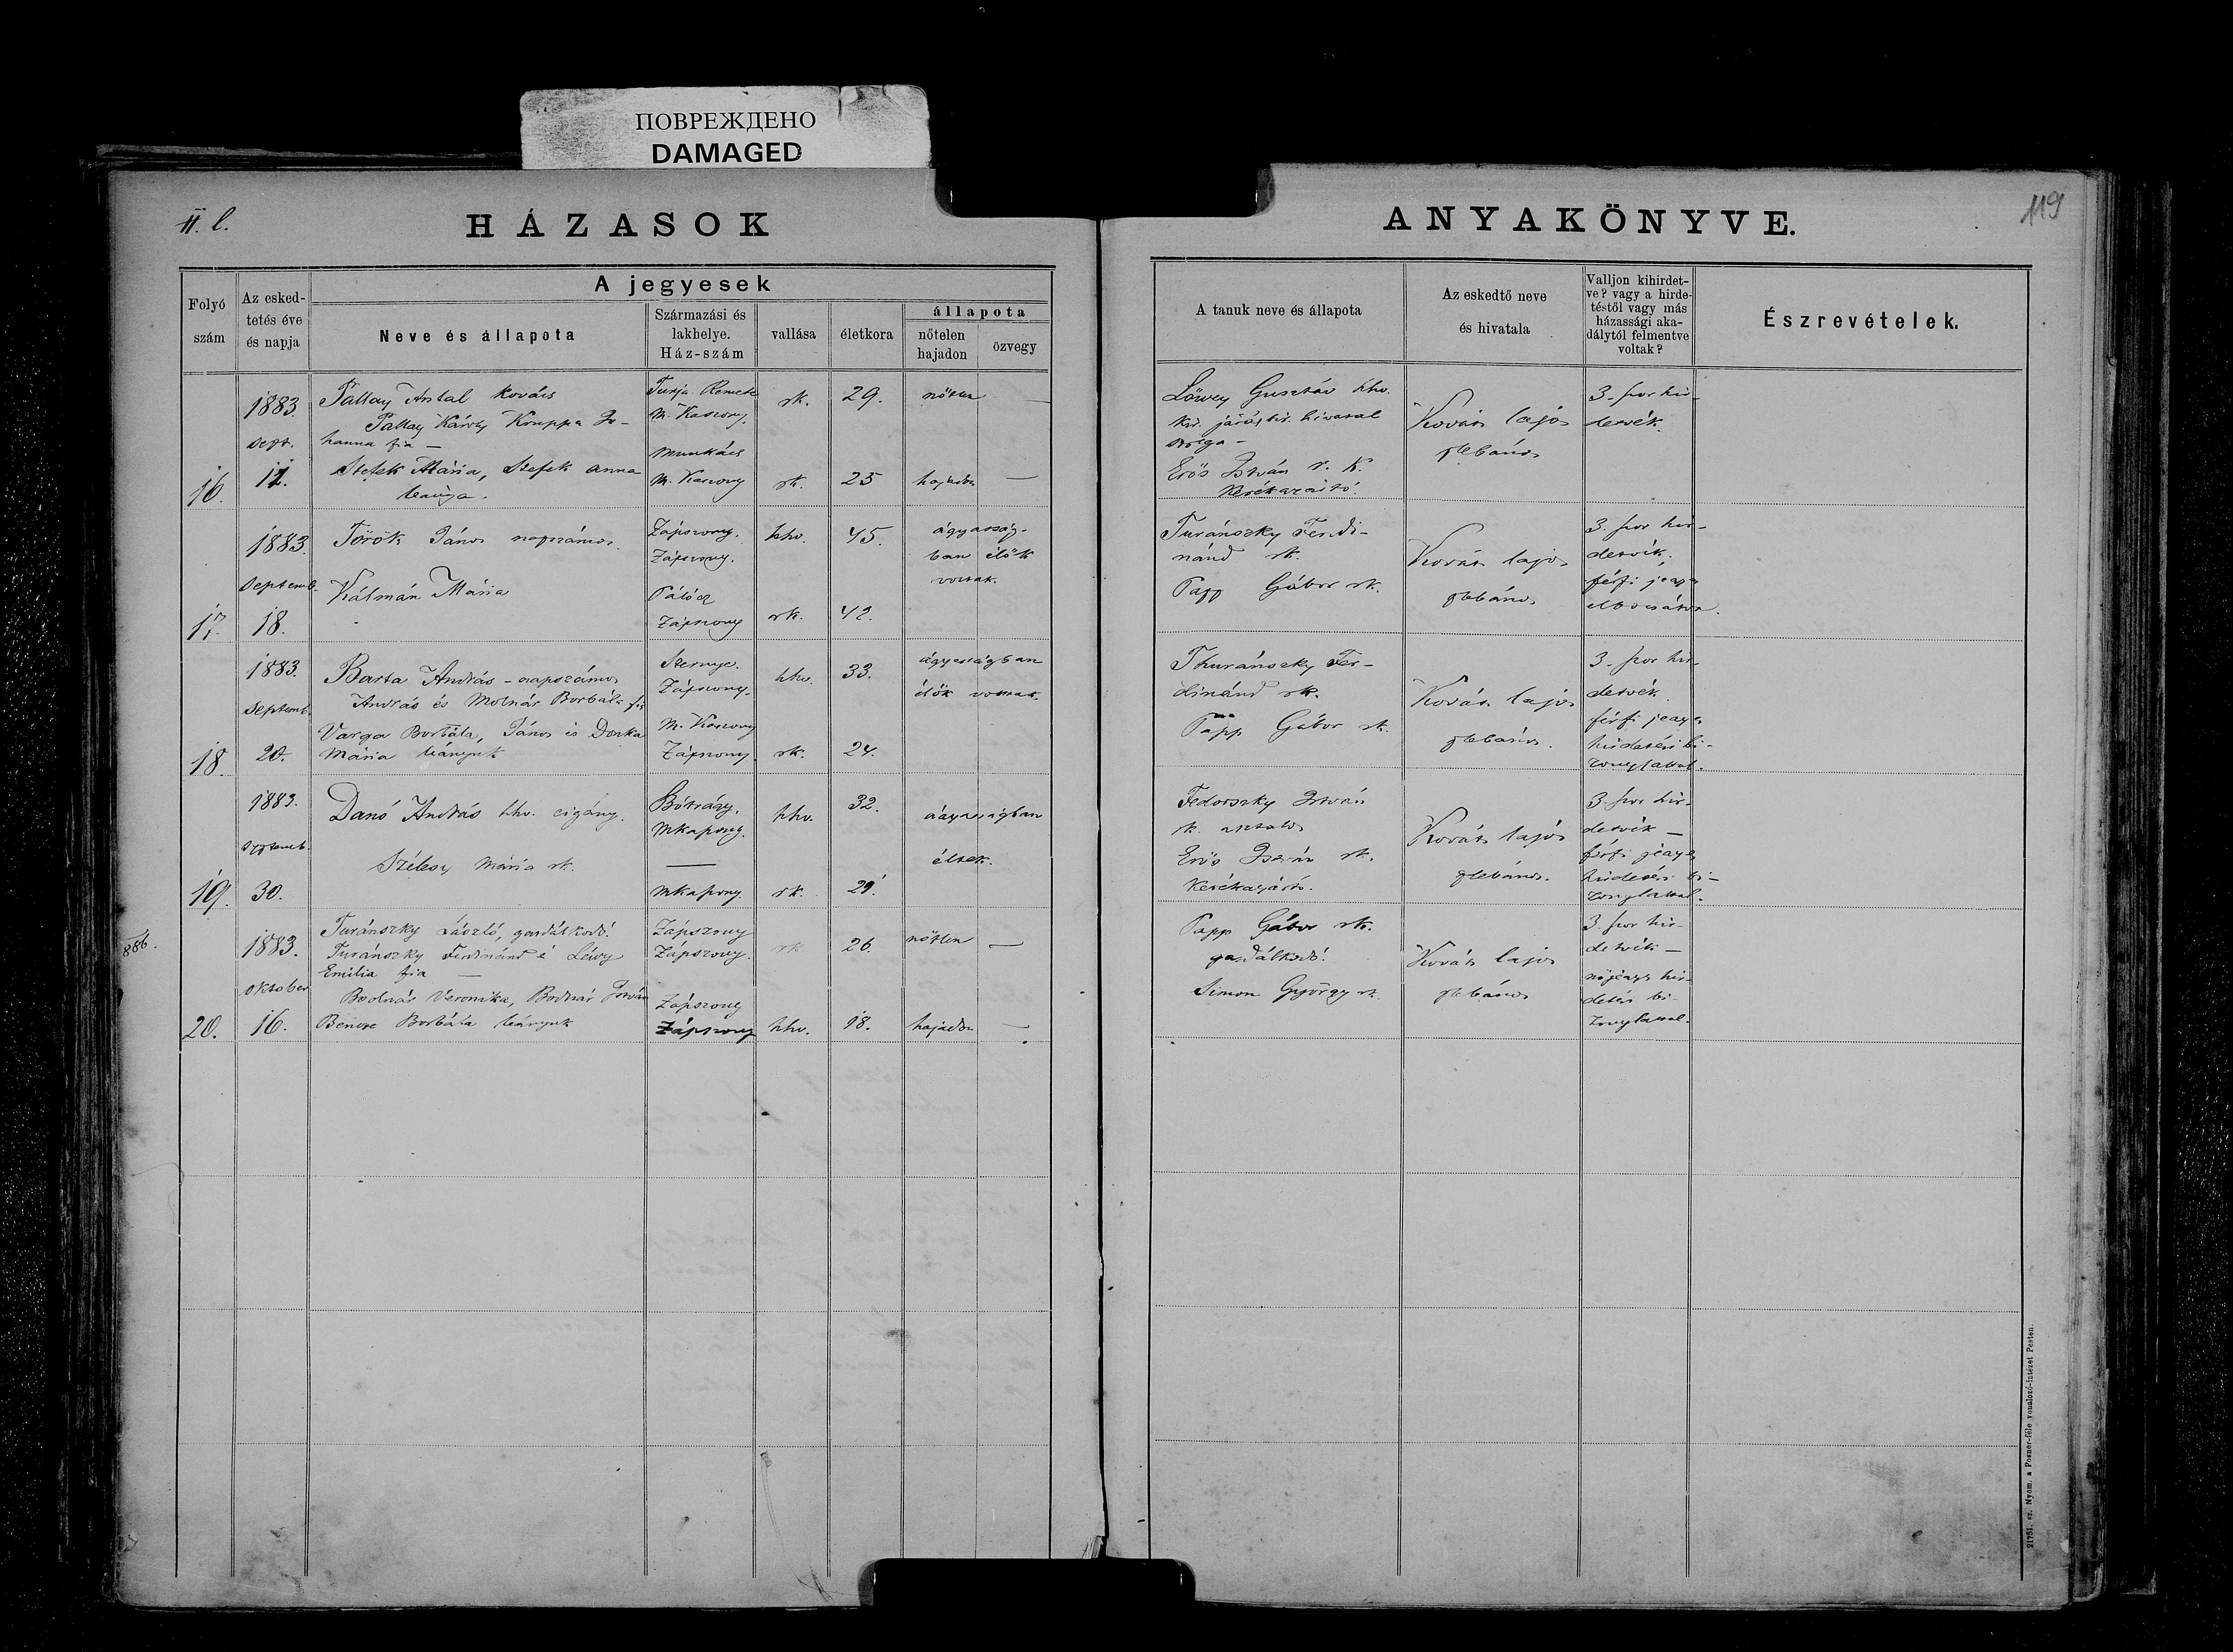 ПОВРЕЖДЕНО
DAMAGED
II. l.
HÁZASOK
ANYAKÖNYVE.
119
Folyó szám
Az esked-
tetés éve
és napja
A jegyesek
Neve és állapota
Származási és
lakhelye.
Ház-szám
vallása
életkora
állapota
nőtelen
hajadon
özvegy
A tanuk neve és állapota
Az eskedtő neve
és hivatala
Valljon kihirdet-
ve? vagy a hirde-
téstől vagy más
házassági aka-
dálytól felmentve
voltak?
Észrevételek.
16.
1883
sept.
11.
Pallay Antal kovács
Pallay Károly Kruppa Jo-
hanna fia —
Stefek Mária, Stefek Anna
leánya.
Turja Remete
M. Kaszony.
Munkács
M. Kaszony
rk.
rk.
29.
25
nőtlen —
hajadon —
Löwey Gusztáv hhv.
kir. járásbir. hivatal
szolga —
Erős István r. k.
Kerékgyártó.
Kovács lajos
plebános
3-szor hir-
detvék.
17.
1883.
Septemb.
18.
Török János napszámos.
Kálmán Mária
Zápszony.
Zápszony.
Pálócz
Zápszony
hhv.
rk.
45.
42.
ágyasság-
ban élők
voltak.
Turánszky Ferdi-
nánd rk.
Papp Gábor rk.
Kovács lajos
plebános
3-szor hir-
detvék.
férfi jegyes
elbocsátva.
18.
1883.
Septemb.
20.
Barta András - napszámos
András és Molnár Borbála fia
Varga Borbála, János és Donka
Mária leányuk
Szernye.
Zápszony.
M. Kaszony
Zápszony
hhv.
rk.
33.
24.
ágyasságban
élők voltak.
Thuránszky Fer-
dinánd rk.
Papp Gábor rk.
Kovács lajos
plebános.
3-szor hir-
detvék.
férfi jegyes
hirdetési bi-
zonylattal.
19.
1883.
Septemb.
30.
Danó András hhv. cigány.
Szélesy Mária rk.
Bótrágy.
Mkaszony.
—
Mkaszony.
hhv.
rk.
32.
29.
ágyasságban
éltek.
Fedorszky István
rk. asztalos
Erős István rk.
Kerékgyártó.
Kovács lajos
plebános.
3-szor hir-
detvék —
férfi jegyes
hirdetési bi-
zonylattal.
886.
20.
1883.
Oktober
16.
Turánszky László, gazdálkodó.
Turánszky Ferdinánd é Léwy
Emilia fia —
Bodnár Veronika, Bodnár István
Bencze Borbála leányuk
Zápszony
Zápszony.
Zápszony
Zápszony
rk
hhv.
26
18.
nőtlen —
hajadon —
Papp Gábor rk.
gazdálkodó.
Simon György rk.
Kovács lajos
plebános
3-szor hir-
detvék —
nőjegyes hir-
detési bi-
zonylattal.
21751. sz. Nyom. a Posner-féle vonalozó-intézet Pesten.